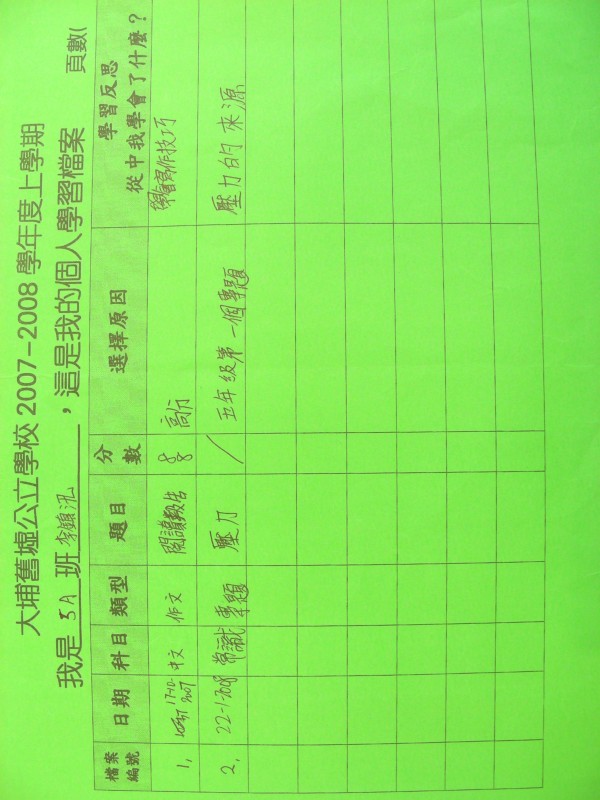 大埔舊墟公立學校 2007-2008 學年度上學期
我是 5A 班 李鎮汎 ，這是我的個人學習檔案 頁數(
檔案編號 日期 科目 類型 題目 分數 選擇原因 學習反思 從中我學會了什麼？
1, 17-12-2007 中文 作文 閱讀報告 88 高分 學會寫作技巧
2, 22-1-2008 常識 專題 壓力 / 五年級第一個專題 壓力的來源